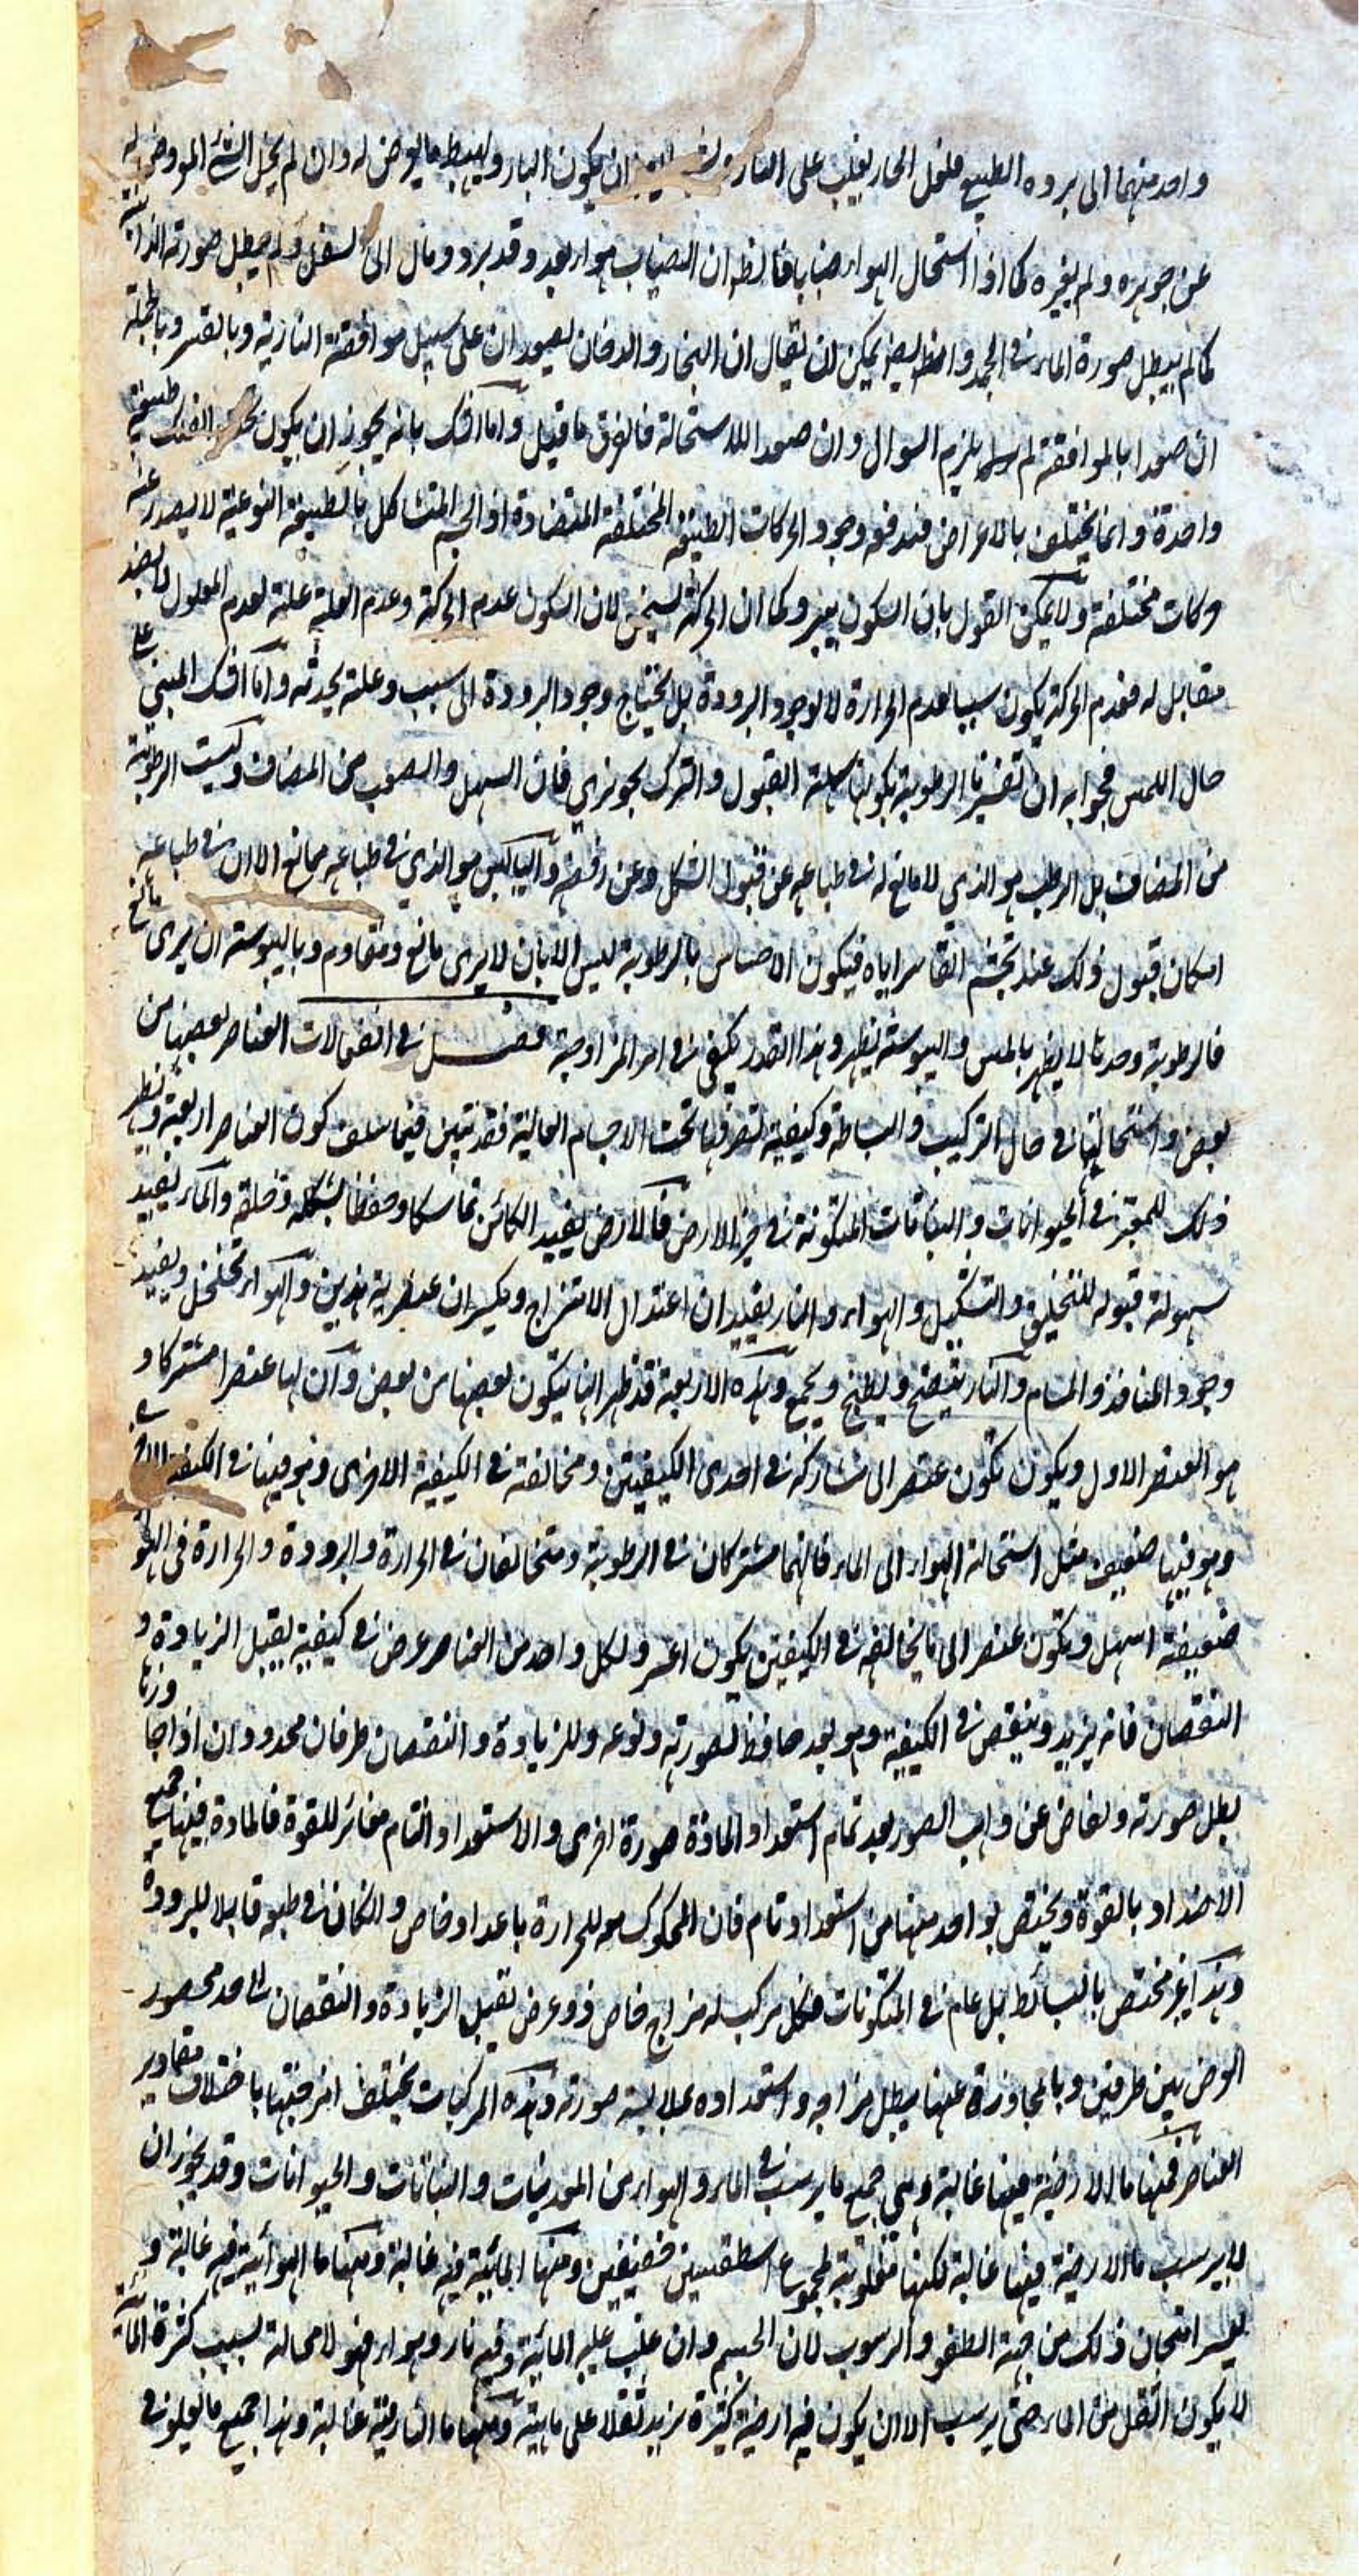 واحد منهما الى بروه الطبيع فلنحل الحار يغلب على النارية ان يكون البارد يهبط ما يعرض له وان لم يحل الشئ المعروض له
عن جوهره ولم يغيره كما اذا استحال الهواء ضبابا فانظر ان الضباب هواء بعد وقد برد ومال الى السفل ولم يبطل صورته الذاتية
كما لم يبطل صورة الماء فى الجمد وايضا يمكن ان يقال ان البخار والدخان يصعدان على سبيل موافقة النارية وبالقسر وبالجملة
ان صعدا بالموافقة لم يلزم السوال وان صعدا للاستحالة فالفرق ما قيل واما الشك بانه يجوز ان يكون طبيعة
واحدة وانما يختلف بالاعراض فيدفعه وجود الحركات الطبيعية المختلفة المتضادة اذ الجسم المتشاكل بالطبيعة النوعية لا يصدر عنه
حركات مختلفة ولا يمكن القول بان السكون يبرد كما ان الحركة تسخن لان السكون عدم الحركة وعدم العلة علة لعدم المعلول لا لضد
مقابل له فعدم الحركة يكون سببا لعدم الحرارة لا لوجود البرودة بل يحتاج وجود البرودة الى سبب وعلة يحدثه واما الشك المبنى على
حال اللمس فجوابه ان تفسيرنا الرطوبة بكونها سهلة القبول والترك تجوزى فان السهل والصعب من المضاف وليست الرطوبة
من المضاف بل الرطب هو الذي لا مانع له فى طباعه عن قبول الشكل وعن رفضه واليابس هو الذي فى طباعه ممانع الا ان فى طباعه
امكان قبول ذلك عند تجشم القاسر اياه فيكون الاحساس بالرطوبة ليس الا بان لا يرى مانع ومقاوم وباليبوسة ان يرى مانع
فالرطوبة وحدها لا يظهر بالمس واليبوسة يظهر وهذا القدر يكفى فى امر المزاوجة فصل فى انفعالات العناصر بعضها من
بعض واستحالتها فى حال التركيب والبساطة وكيفية تصرفها تحت الاجسام العالية فقد تبين فيما سلف كون العناصر اربعة ونظر
ذلك للمعتبر فى الحيوانات والنباتات المتكونة فى حيز الارض فالارض يفيد الكائن تماسكا وحفظا لشكله وخلقه والماء يفيد
سهولة قبوله للتخليق والتشكيل والهواء والنار يفيدان اعتدال الامتزاج ويكسران عنصرية هذين والهواء تخلخل ويفيد
وجود المنافذ والمسام والنار ينضج ويطبخ ويجمع وهذه الاربعة قد ظهر انها يتكون بعضها من بعض وان لها عنصرا مشتركا و
هو العنصر الاول ويكون تكون عنصر الى مشاركه فى احدى الكيفيتين ومخالفته فى الكيفية الاخرى وهو فيها فى الكيفية
وهو فيها ضعيف مثل استحالة الهواء الى الماء فانهما مشتركان فى الرطوبة ومتخالفان فى الحرارة والبرودة والحرارة فى الهواء
ضعيفة اسهل وتكون عنصر الى ما يخالفه فى الكيفيتين يكون اعسر ولكل واحد من العناصر عرض فى كيفية يقبل الزيادة و
النقصان فانه يزيد وينقص فى الكيفية وهو بعد حافظ لصورته ونوعه وللزيادة والنقصان طرفان محدودان اذا جاوزها
بطل صورته ولفاض عن واهب الصور بعد تمام استعداد المادة صورة اخرى والاستعداد التام مغائر للقوة فالمادة فيها جميع
الاضداد بالقوة ويختص بواحد منها من استعداد تام فان المحكوك معد للحرارة باعداد خاص وان كان فى طبعه قابلا للبرودة
وهذا غير مختص بالبسائط بل عام فى المتكونات فكل مركب له مزاج خاص ذو عرض يقبل الزيادة والنقصان الى حد محصور
العرض بين طرفين وبالمجاوزة عنها يبطل مزاجه واستعداده بملابسة صورته وهذه المركبات يختلف امزجتها باختلاف مقادير
العناصر فمنها ما الارضية فيها غالبة وهى جميع ما يرسب فى الماء والهواء من المعدنيات والنباتات والحيوانات وقد يجوز ان
لا يرسب ما الارضية فيها غالبة لكنها مغلوبة لمجموع اسطقسين خفيفين ومنها المائية فيه غالبة ومنها ما الهوائية فيه غالبة و
يعسر امتحان ذلك من جهة الطفو والرسوب لان الجسم وان غلب عليه المائية وفيه نار وهواء فهو لا محالة بسبب كثرة المائية
لا يكون اثقل من الماء حتى يرسب الا ان يكون فيه ارضية كثيرة يزيد ثقلا على مائيته ومنها ما النارية غالبة وهذا جميع ما يعلو فى